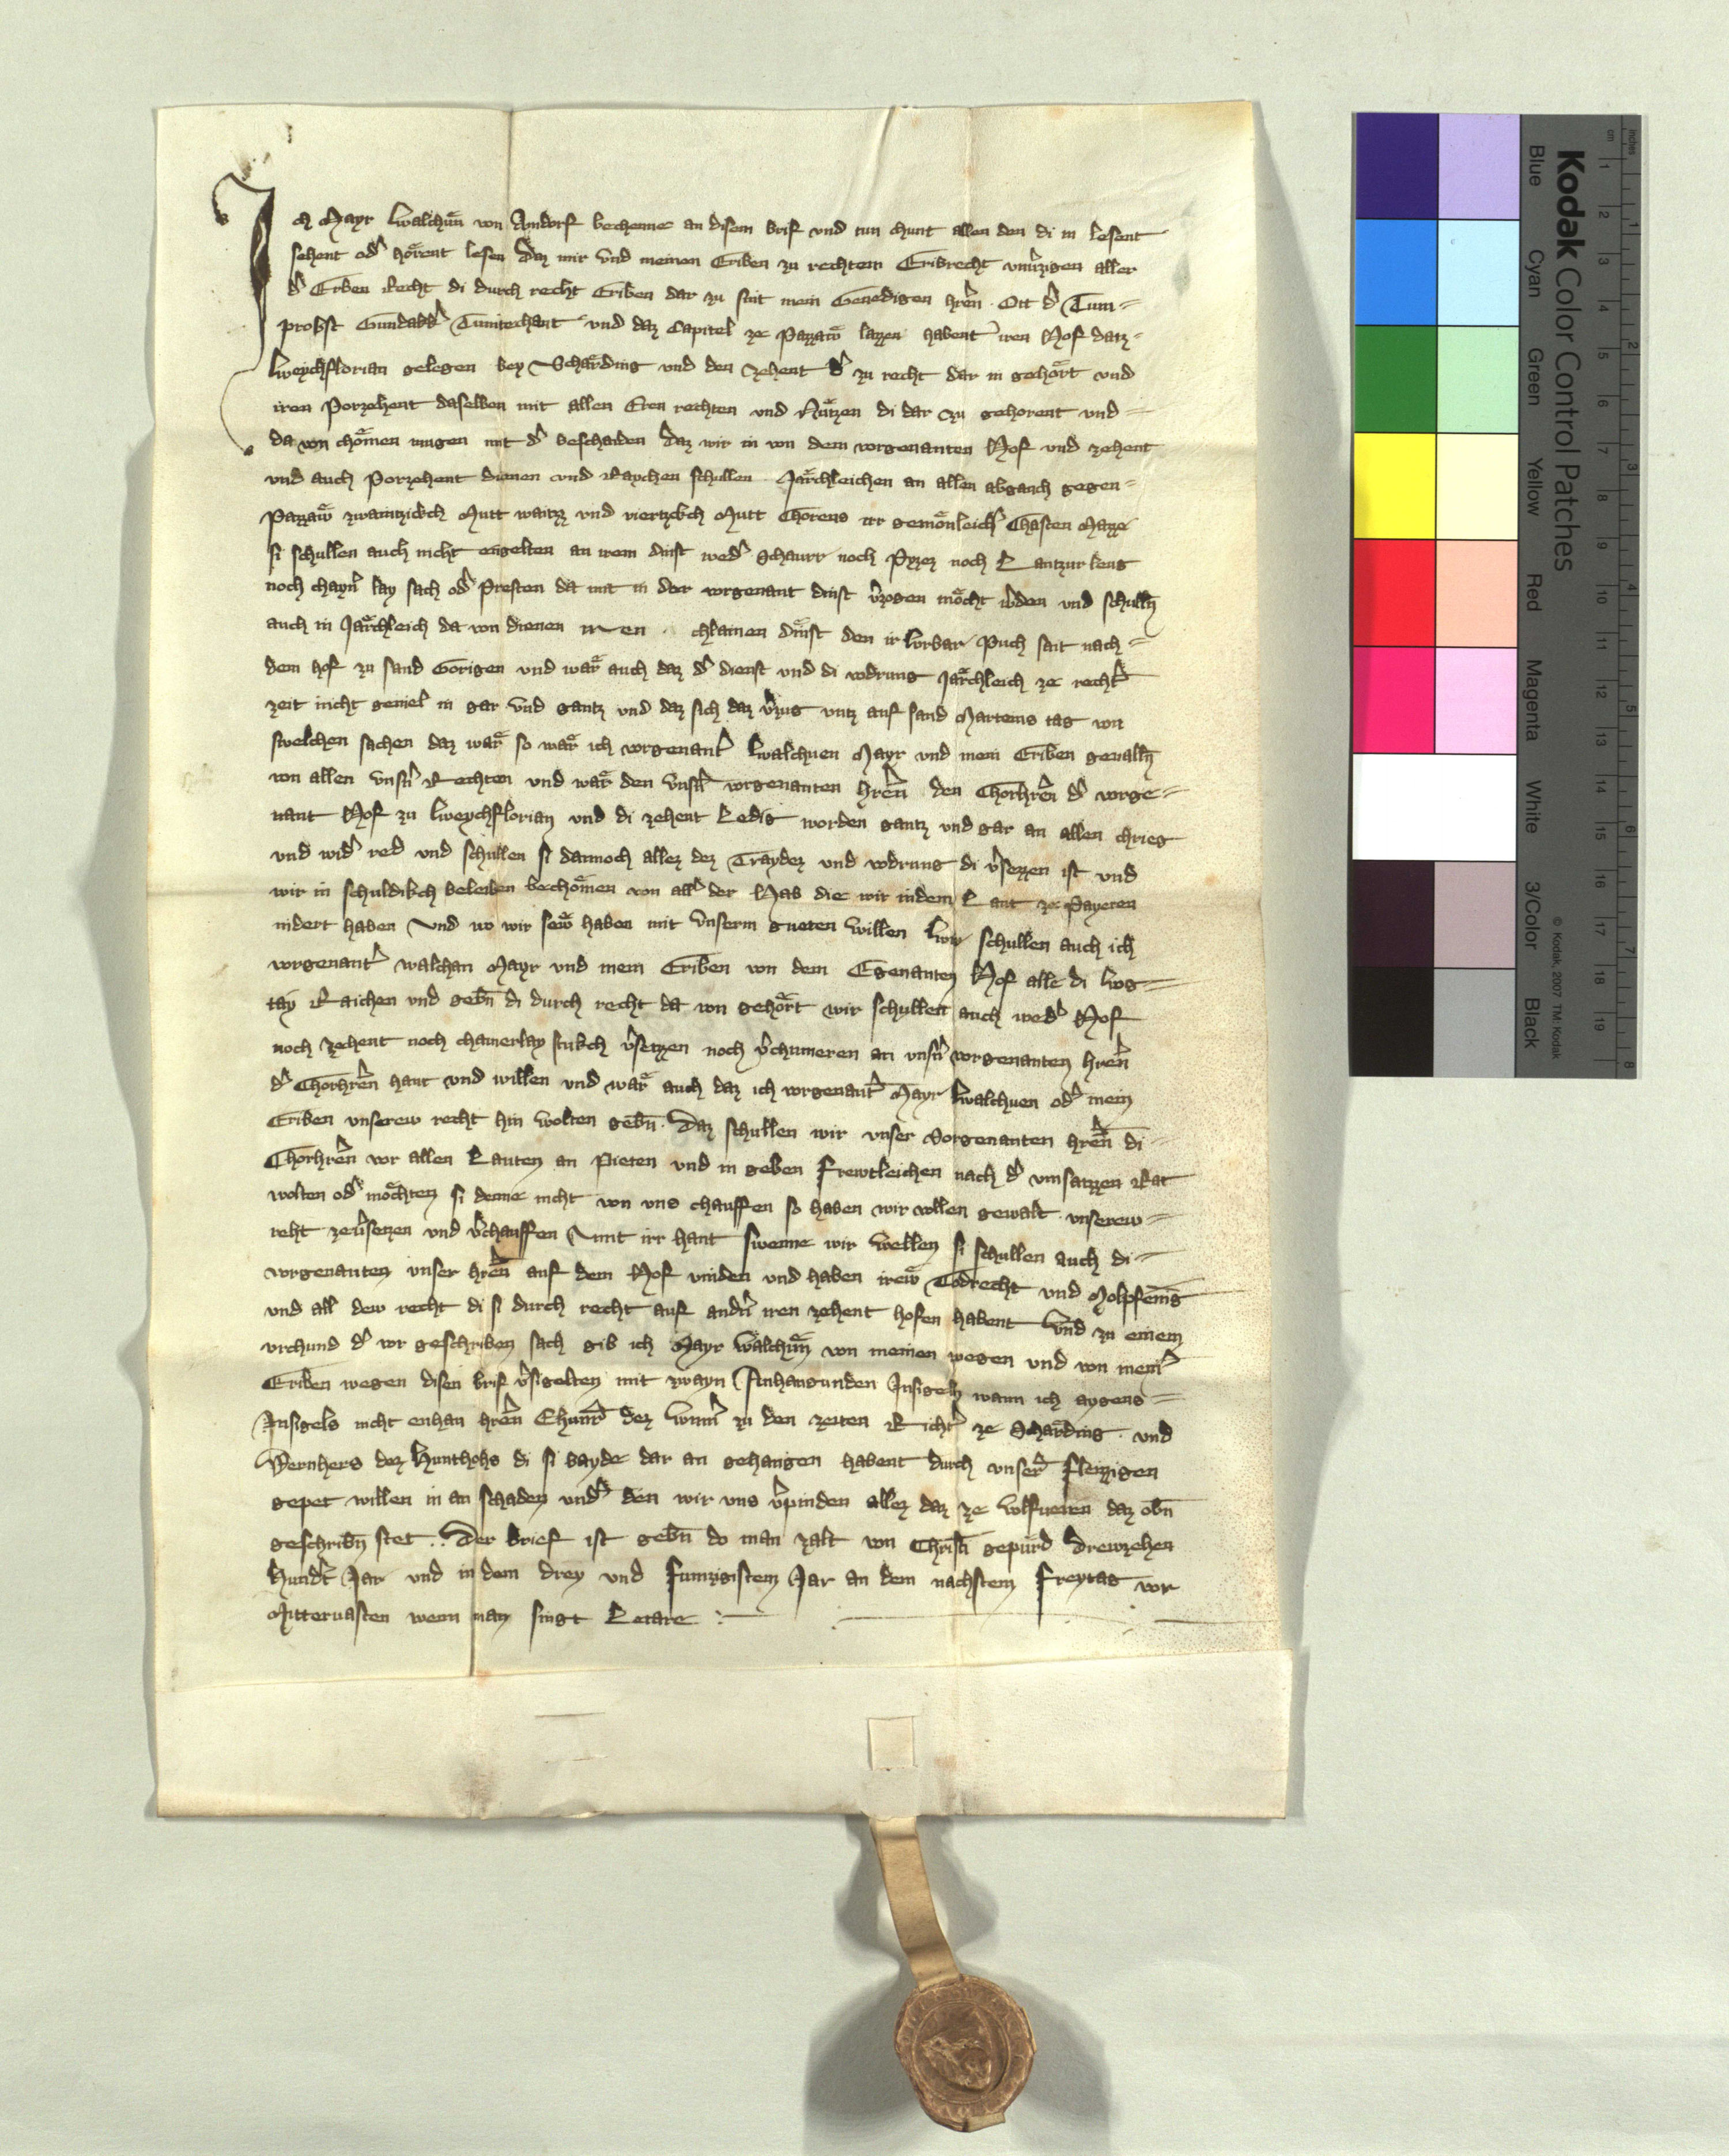 Ich Mayr Walchuͤn von Andorf bechenne an disem brif vnd tun chunt allen den di in lesent
sehent od' hoͤrent lesen daz mir vnd meinen Eriben zu rechtem Eribrecht vnu'zigen aller
d' Erben Recht di durch recht Eriben dar zu sint mein Genedigen hr̄en Ott d' Tum=
probst Gundakk' Tumtechant vnd daz Capitel ze Pazzaw̆ lazzen habent iren Hof datz=
Weychflorian gelegen bey Schaͤrding vnd den Zehent d' zu recht dar in gehoͤrt vnd
iren Porzehent daselben mit allen Eren rechten vnd Nuͤtzen di dar zu gehorent vnd=
da von choͤmen mugen mit d' beschaiden daz wir in von dem vorgenanten Hof vnd zehent
vnd auch Porzehent dienen vnd Raychen schullen Jaͤrchleichen an allen abganch gegen=
Pazzaw̆ zwaintzickch Mutt waitzz vnd viertzkch Mutt Chorens irr gemoͤnleich' Chasten Mazze
si schullen auch nicht engelten an irem dinst wed' Schaurr noch Pyzez noch Lantzurleug
noch chayn' lay sach od' Presten da mit in der vorgenant dinst v'zogen moͤcht w'den vnd schulln̄
auch in Jaͤrchleich da von dienen iren chlainen diͤnst den ir Vrbar Puch sait nach=
dem hof zu sand Gorigen vnd waͤr auch daz d' dienst vnd di vodrung Jaͤrchleich ze recht'
zeit nicht geuiel in gar vnd gantz vnd daz sich daz v'zug vntz auf sand Marteins tag von
swelchen sachen daz waͤr so waͤr ich vorgenant' Walchuen Mayr vnd mein Eriben geualln̄
von allen vnsn' Rechten vnd waͤr den vnsn' vorgenanten hr̄en den Chorhr̄en d' vorge=
nant Hof zu Weychflorian vnd di zehent Ledig worden gantz vnd gar an allen chrieg
vnd wid' red vnd schullen si dannoch allez dez Traydez vnd vodrung di v'sezzen ist vnd
wir in schuldikch beleiben bechoͤmen von all' der Hab die wir indem Lant ze Payeren
nidert haben Vnd wo wir sew̆ haben mit vnserm gueten willen Wir schullen auch ich
vorgenant' walchan Mayr vnd mein Eriben von dem Egenanten Hof alle di Vog=
tay Raichen vnd gebn̄ di durch recht da von gehoͤrt wir schullen auch wed' Hof
noch zechent noch chainerlay stukch v'setzen noch v'chumeren an vnsn' vorgenanten hr̄en
d' Chorhr̄en hant vnd willen vnd waͤr auch daz ich vorgenant' Mayr Walchuen od' mein
Eriben vnserew recht hin wolten gebn̄. Daz schullen wir vnser Vorgenanten hr̄en di=
Chorhr̄en vor allen Lauten an Pieten vnd in geben frewtleichen nach d' vmsazzen Rat
wolten od' moͤchten si denne nicht von vns chauffen so haben wir vollen gewalt vnserew=
reht zev'setzen vnd v'chauffen Mit irr hant swenne wir wellen si schullen auch di=
vorgenanten vnser hr̄en auf dem Hof vinden vnd haben irew̆ Todrecht vnd Molpfenig
vnd all dew recht di si durch recht auf andn' iren zehent hofen habent vnd zu einem
vrchund d' vor geschriben sach gib ich Mayr walchuͤn von meinen wegen vnd von mein'
Eriben wegen disen brif v'sigelten mit zwayn Anhangunden Insigeln wann ich aygens=
Insigels nicht enhan hr̄en Chunr̄ dez zu den zeiten Richt' ze Schaͤrding vnd
Wernhers dez di si bayde dar an gehangen habent durch vnser' fleizzigen
gepet willen in an schaden vnd' den wir vns v'pinden allez daz ze volfueren daz obn̄
geschribn̄ stet. Der brief ist gebn̄ do man zalt von Christi gepuͤrd drewzehen
Hundt' Jar vnd in dem drey vnd fumzigistem Jar an dem nachstem Freytag vor
Mitteruasten wenn man singt Letare